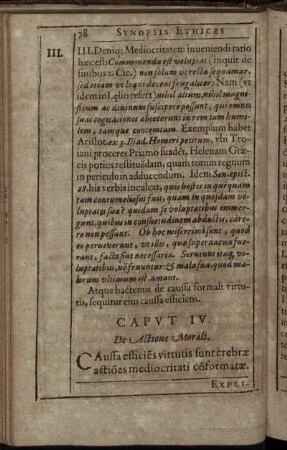 78 SYNOPSIS ETHICES
III. III. Deniq; Mediocritatem inueniendi ratio
hæc est: Commonenda est voluptas (inquit de
finibus 2. Cic.) non solum vt recta sequamur,
sed etiam vt loqui deceat frugaliter: Nam (vt
idem in Lælio refert) nihil altum, nihil magni-
ficum ac diuinum suscipere possunt, qui omnes
suas cogitationes abiecerunt in rem tum humi-
lem, tamque contemtam. Exemplum habet
Aristot. ex 3. Iliad. Homeri petitum, vbi Tro-
iani proceres Priamo suadēt, Helenam Græ-
cis potius restituēdam, quam totum regnum
in periculum adducendum. Idem Sen. epist.
28. his verbis inculcat, quis hostis in quenquam
tam contumeliosus fuit, quam in quosdam vo-
luptates suæ? quidam se voluptatibus immer-
gunt, quibus in consuetudinem abductis, care-
re non possunt. Ob hoc miserrimi sunt, quod
eo peruenerunt, vt illis, quæ superuacua fue-
rant, facta sint necessaria. Seruiunt itaq, vo-
luptatibus, nō fruuntur: & mala sua, quod ma-
lorum vltimum est, amant.
Atque hactenus de caussa formali virtu-
tis, sequitur eius caussa efficiens.
CAPVT IV.
De Actione Morali.
CAussa efficiēs virtutis sunt crebræ
actiōes mediocritati cōformatæ.
EXPLI-